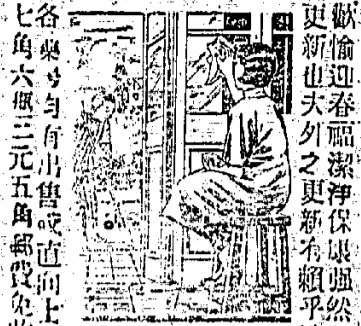 歡愉迎春福潔淨保康強然
更新也夫外之更新有賴乎
各藥号均有出售或直向上
七角六瓶三元五角郵費免